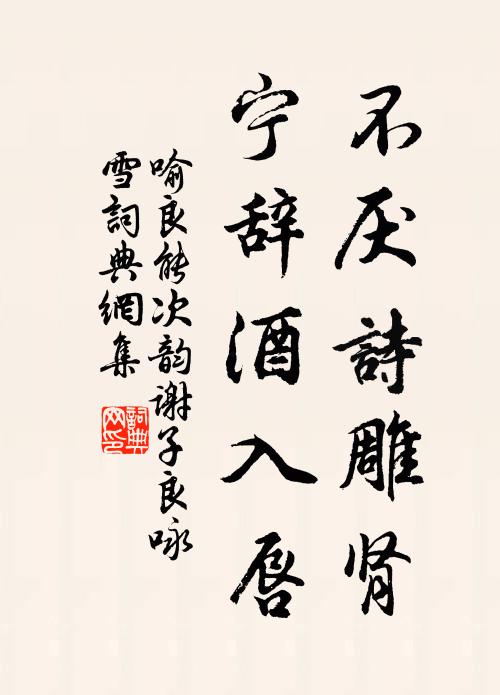 不厌詩雕肾
宁辞酒入唇
喻良能次韵谢子良咏
雪詞典網集
詞典网印